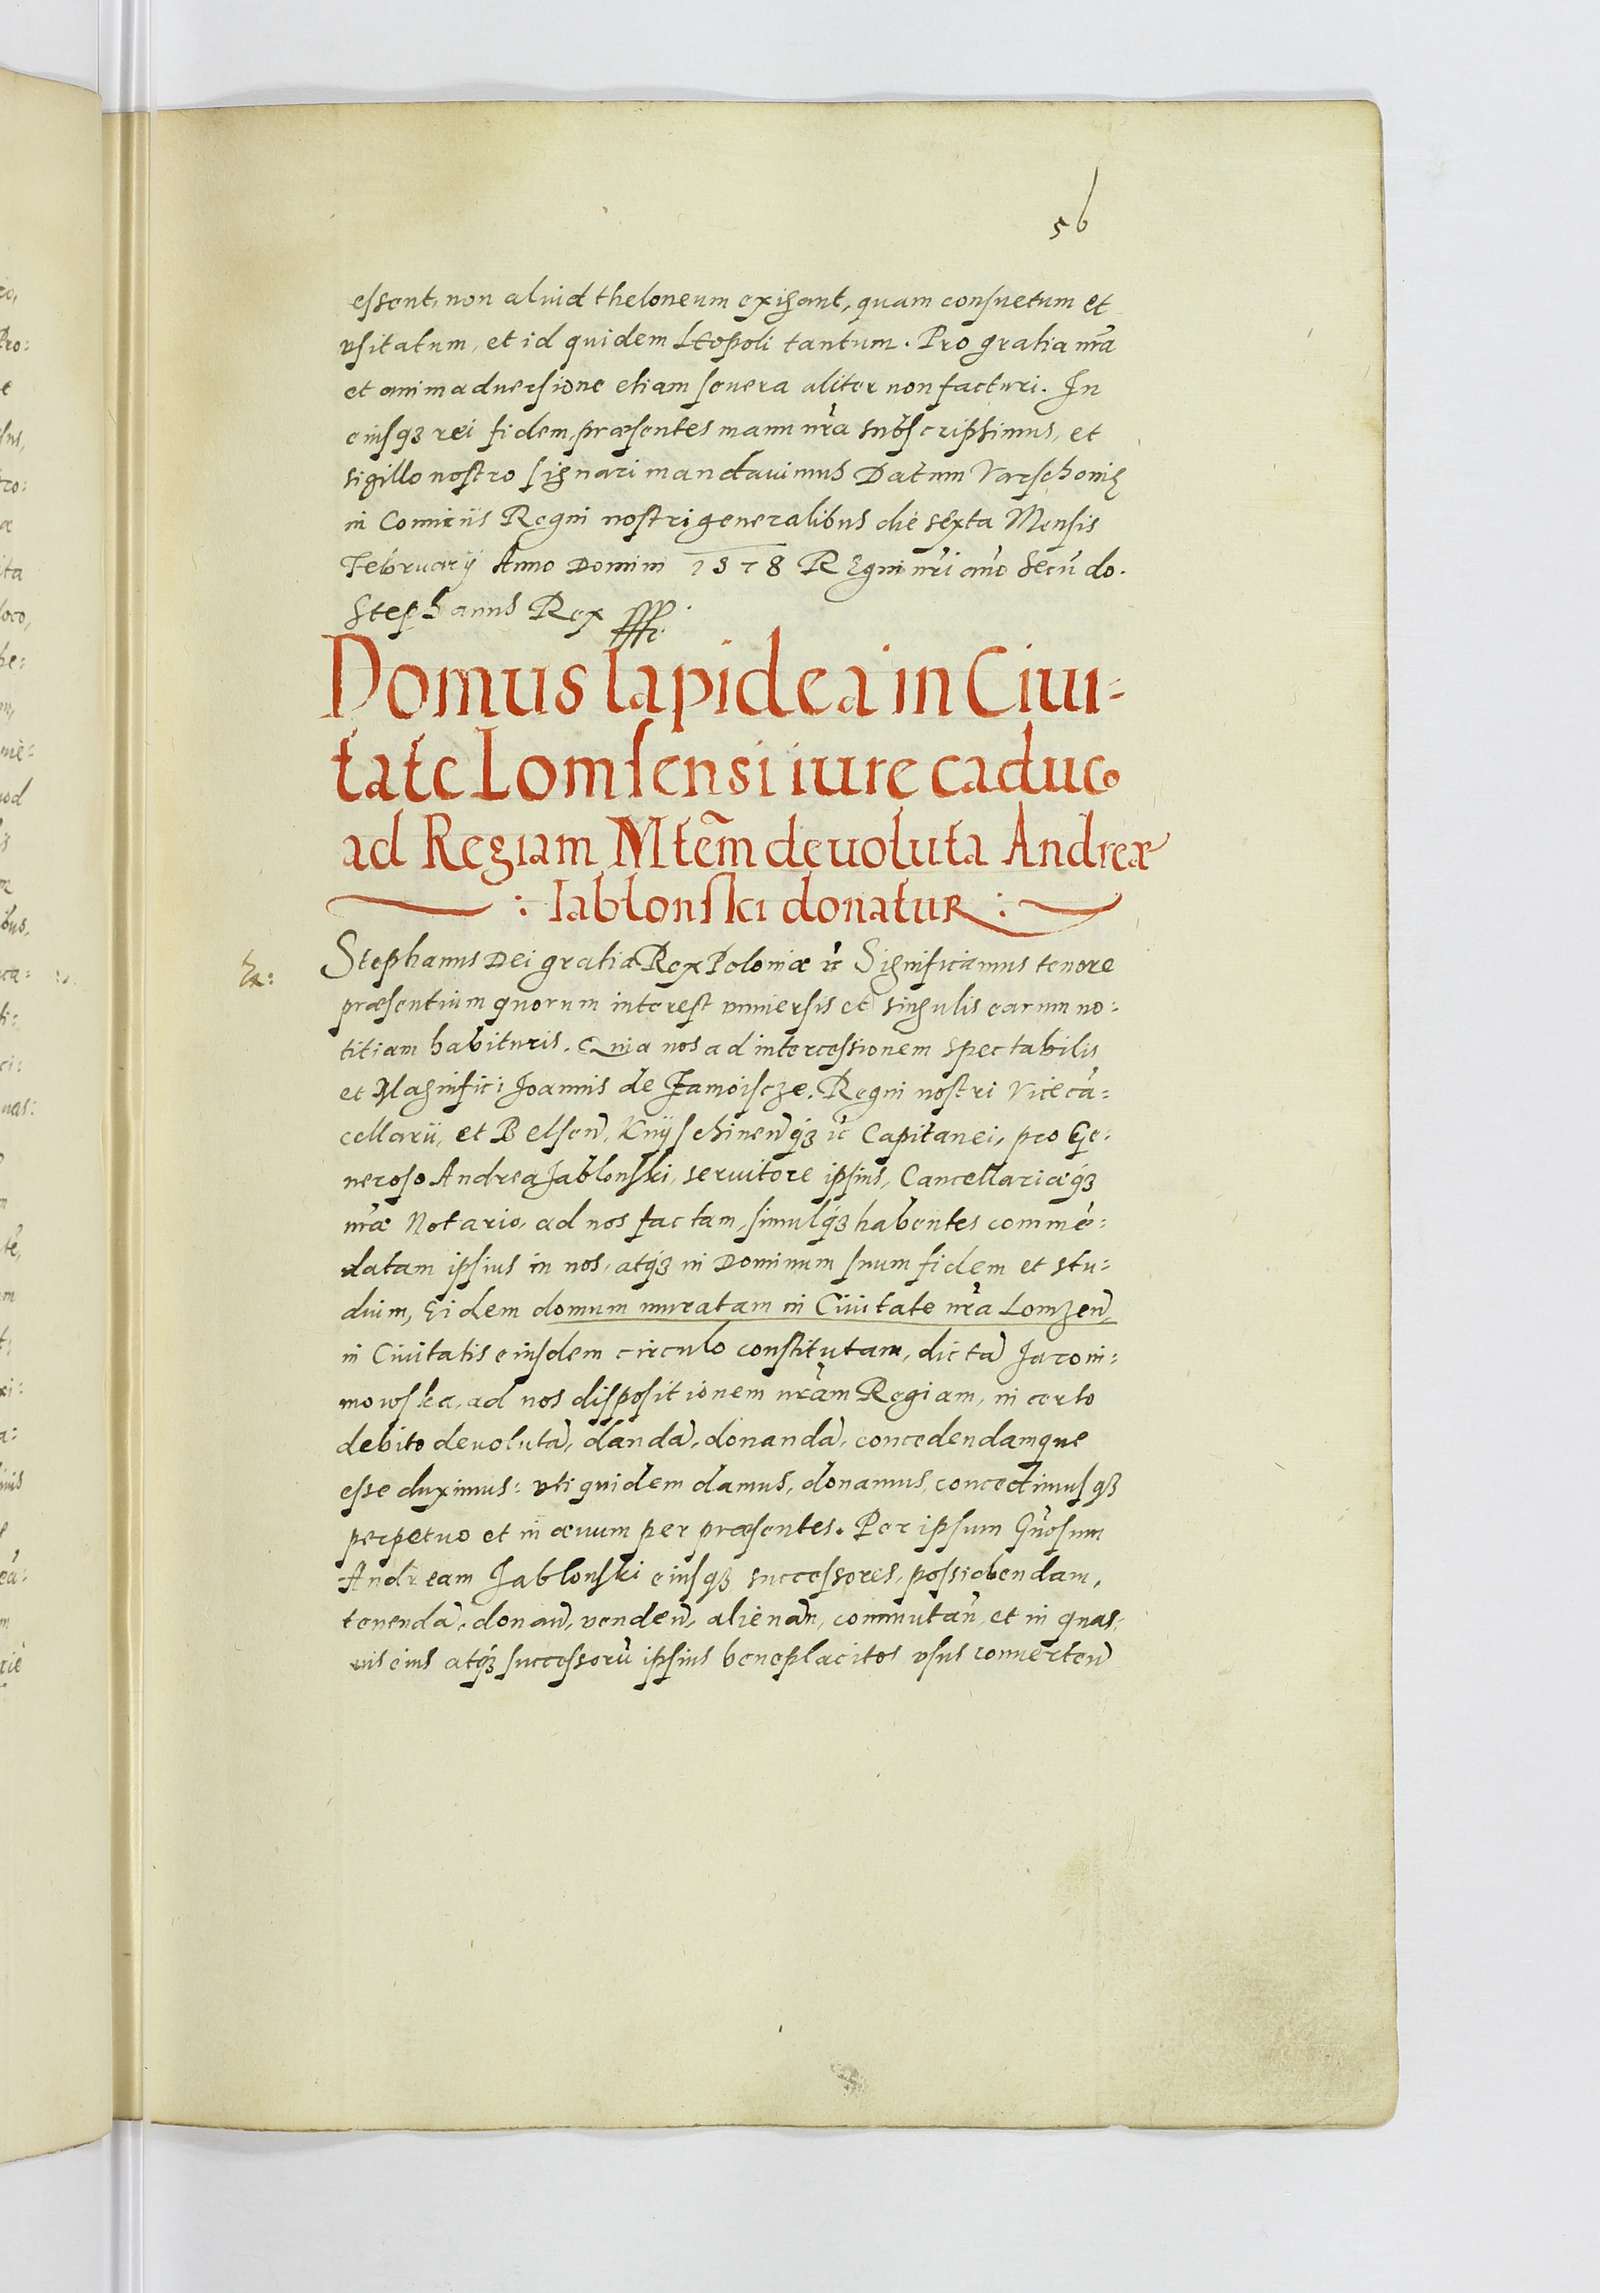 56
essent, non aliud theloneum exigant, quam consuetum et
vsitatum, et id quidem Leopoli tantum. Pro gratia nr̃a
et animaduersione etiam seuera aliter non facturi. In
cuiusqȝ rei fidem, præsentes manu nr̃a subscripsimus, et
sigillo nostro signari mandauimus Datum Varschouię
in Comitiis Regni nostri generalibus die sexta Mensis
Februarij Anno Domini 1578 Regni nr̃i año Secũdo.
Stephanus Rex
Domus lapidea in Ciui-
tate Lomsensi iure caduco
ad Regiam Mtem̃ deuoluta Andreæ
: Iablonski donatur :
Stephanus Dei gratia Rex Poloniæ ꝛc̃ Significamus tenore
præsentium quorum interest vniuersis et singulis earum no:
titiam habituris. Quia nos ad intercessionem spectabilis
et Magnifici Joannis de Zamoiscze. Regni nostri Vicecã:
cellarii, et Belsen̄, Knyschinen̄qȝ ꝛc̃ Capitanei, pro Ge:
neroso Andrea Jablonski, seruitore ipsius, Cancellariæqȝ
nr̃æ Notario, ad nos factam, simulqȝ habentes commẽ:
datam ipsius in nos, atqȝ in Dominum suum fidem et stu:
dium, Eidem domum muratam in Ciuitate nr̃a Lomzen̄,
in Ciuitatis eiusdem circulo constitutam, dictã Jaroni:
mowska, ad nos dispositionem nr̃am Regiam, in certo
debito deuolutã, dandã, donandã, concedendamque
esse duximus: vti quidem damus, donamus, concedimusqȝ
perpetuo et in æuum per præsentes. Per ipsum Gñosum
Andream Jablonski eiusqȝ successores, possidendam,
tenendã, donan̄, venden̄, alienan̄, commutan̄, et in quas,
uis eius atqȝ successorũ ipsius beneplacitos vsus conuerten̄